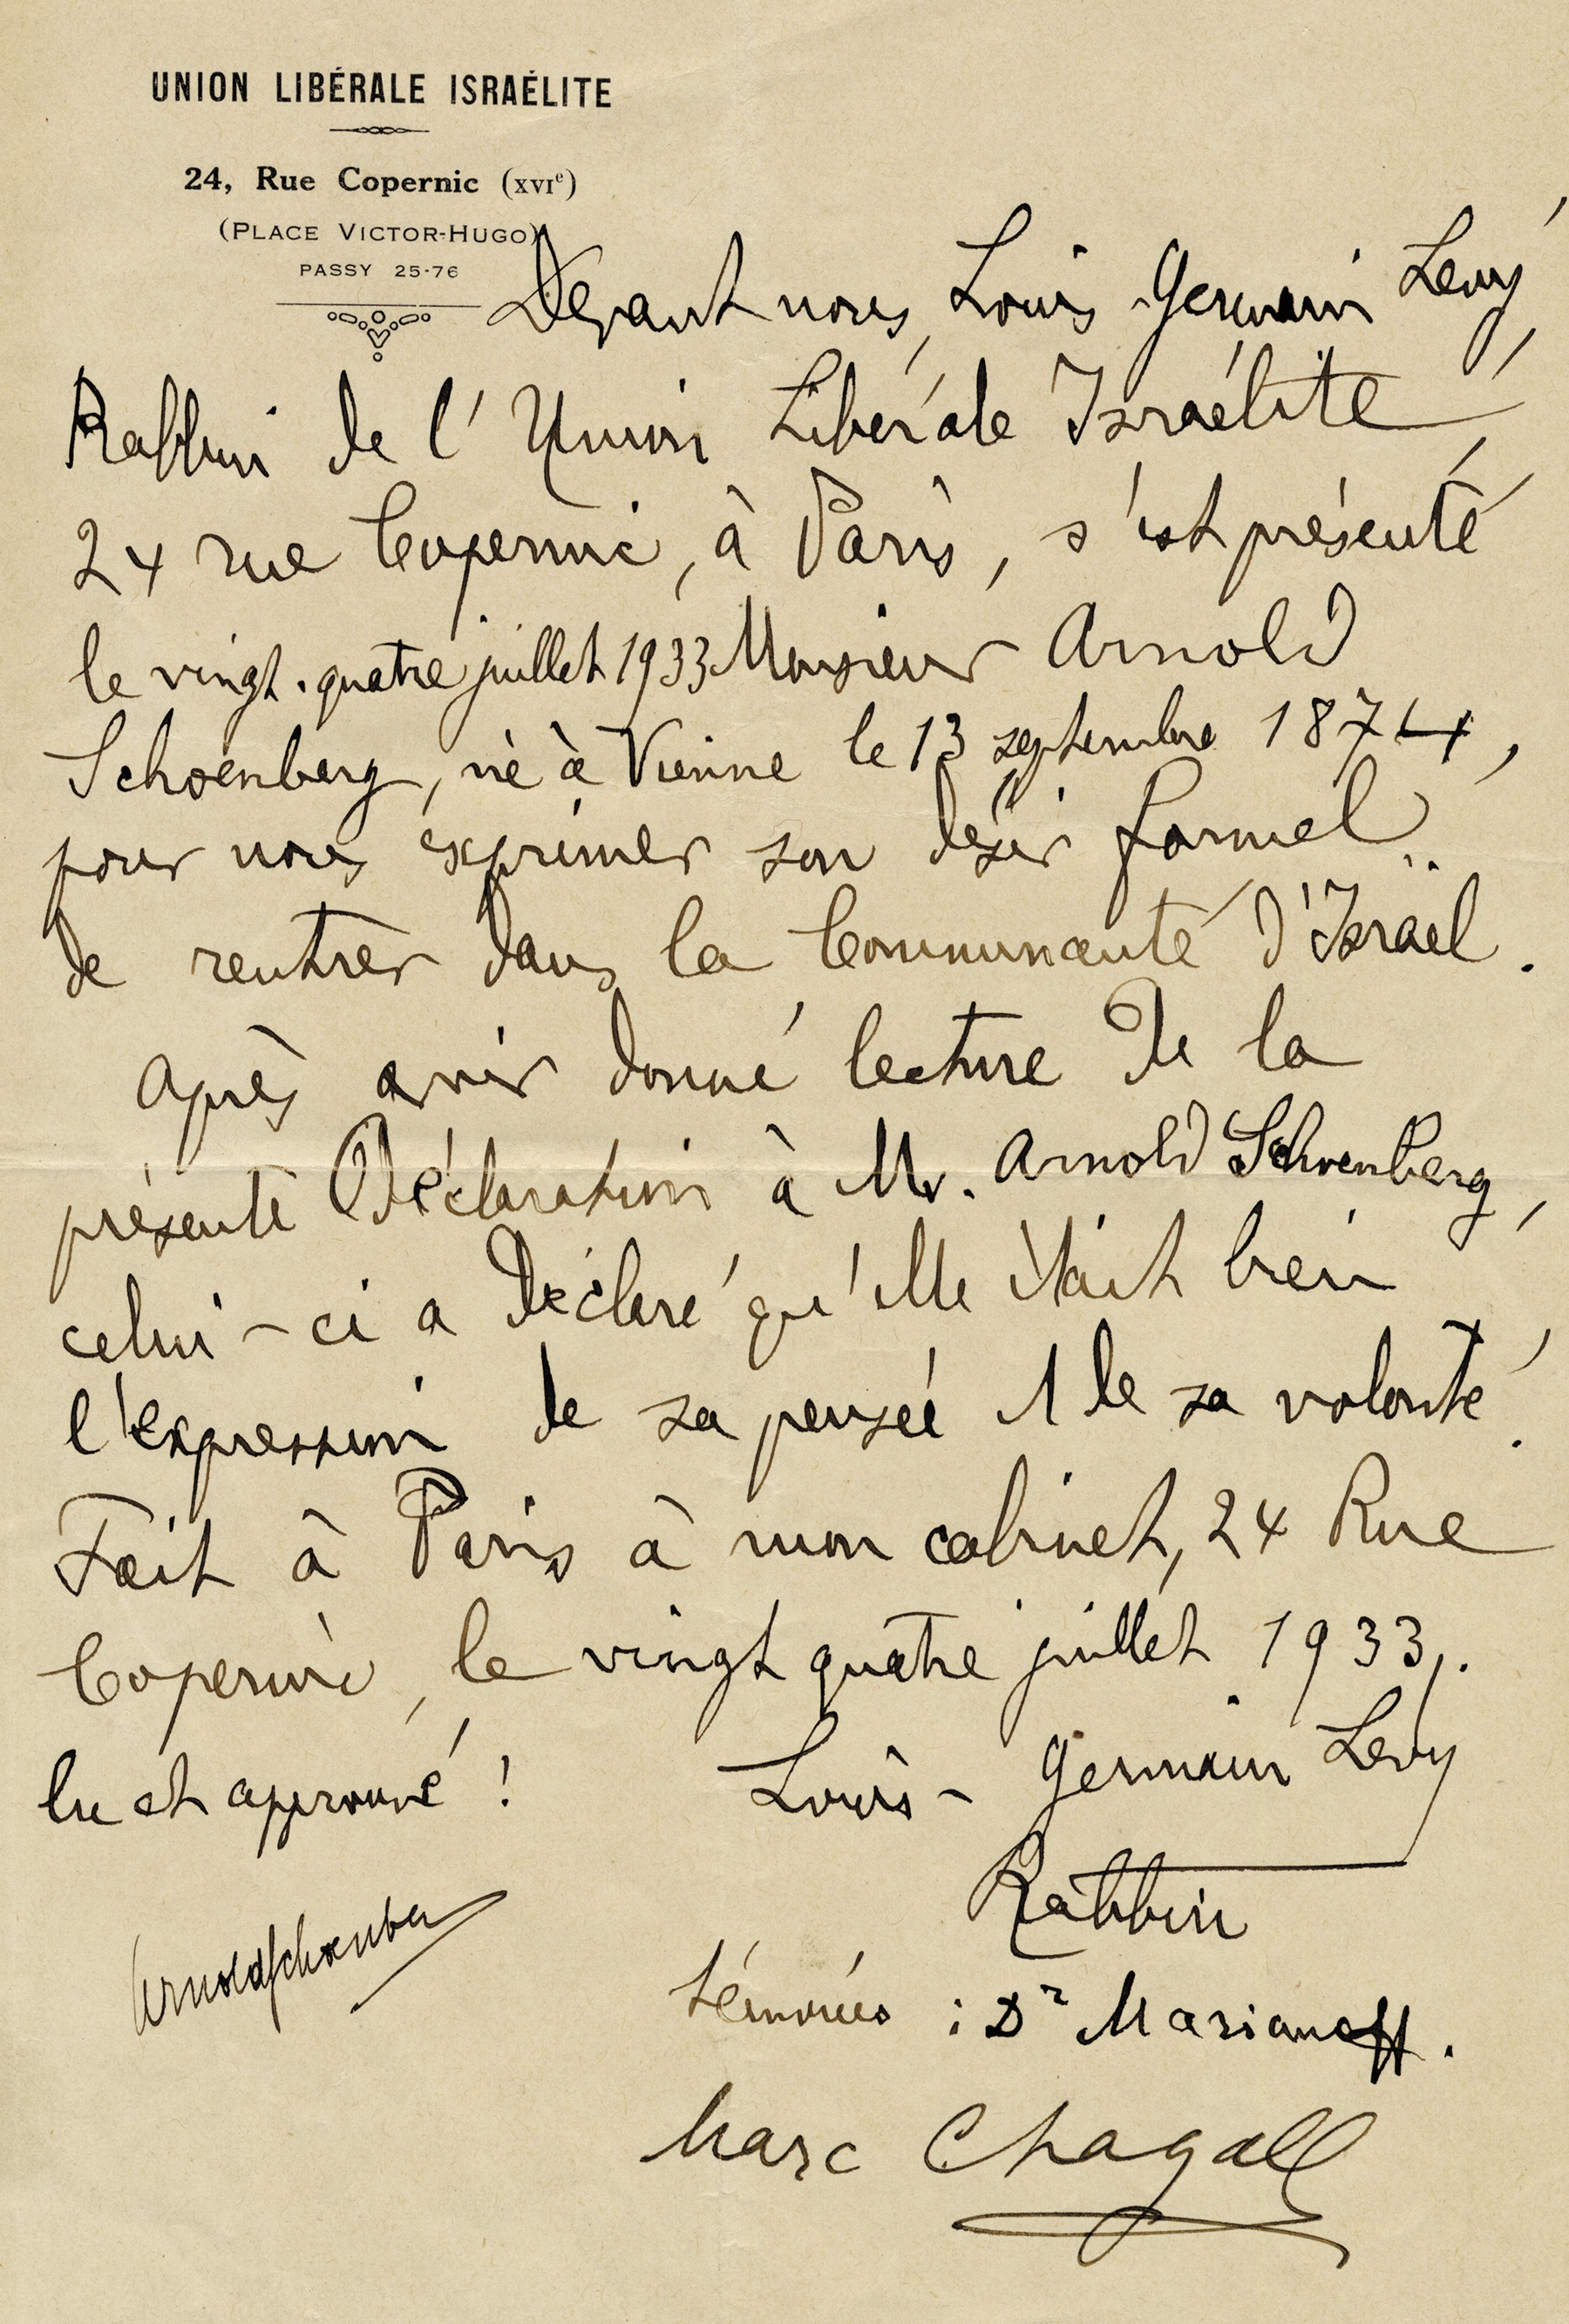 UNION LIBÉRALE ISRAÉLITE
24, Rue Copernic (XVIe)
(PLACE VICTOR-HUGO)
PASSY 25-76
Devant nous, Louis-Germain Levy,
Rabbin de l'Union Libérale Israélite,
24 rue Copernic, à Paris, s'est présenté
le vingt-quatre juillet 1933 Monsieur Arnold
Schoenberg, né à Vienne le 13 septembre 1874,
pour nous exprimer son désir formel
de rentrer dans la Communauté d'Israël.
Après avoir donné lecture de la
présente Déclaration à Mr. Arnold Schoenberg,
celui-ci a Déclaré qu'elle était bien
l'expression de sa pensée et de sa volonté.
Fait à Paris à mon cabinet, 24 Rue
Copernic, le vingt quatre juillet 1933.
lu et approuvé !
Louis-Germain Levy
Rabbin
Arnold Schoenberg
témoins : Dr Marianoff.
Marc Chagall